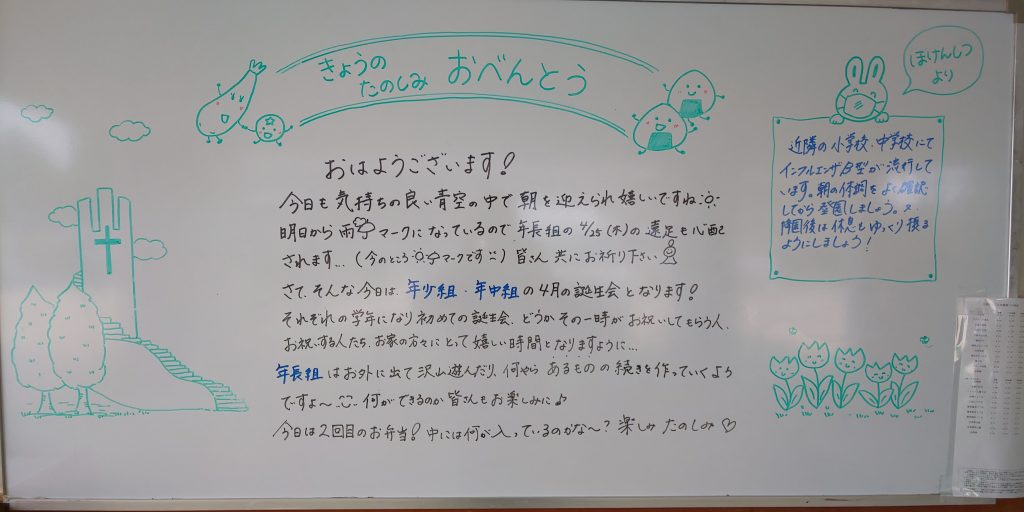 きょうの
たのしみ おべんとう
ほけんしつ
より
おはようございます!
今日も気持ちの良い青空の中で朝を迎えられ嬉しいですね
明日から雨マークになっているので年長組の4/25(木)の遠足も心配
されます…(今のところマークです)皆さん共にお祈り下さい
さて、そんな今日は、年少組・年中組の4月の誕生会となります!
それぞれの学年になり初めての誕生会、どうかその一時がお祝いしてもらう人、
お祝いする人たち、お家の方々にとって嬉しい時間となりますように…
年長組はお外に出て沢山遊んだり、何やらあるものの続きを作っていくよう
ですよ~ 何ができるのか皆さんもお楽しみに♪
今日は2回目のお弁当!中には何が入っているのかな~?楽しみたのしみ♡
近隣の小学校、中学校にて
インフルエンザB型が流行して
います。朝の体調をよく確認
してから登園しましょう。
降園後は休息もゆっくり摂る
ようにしましょう!